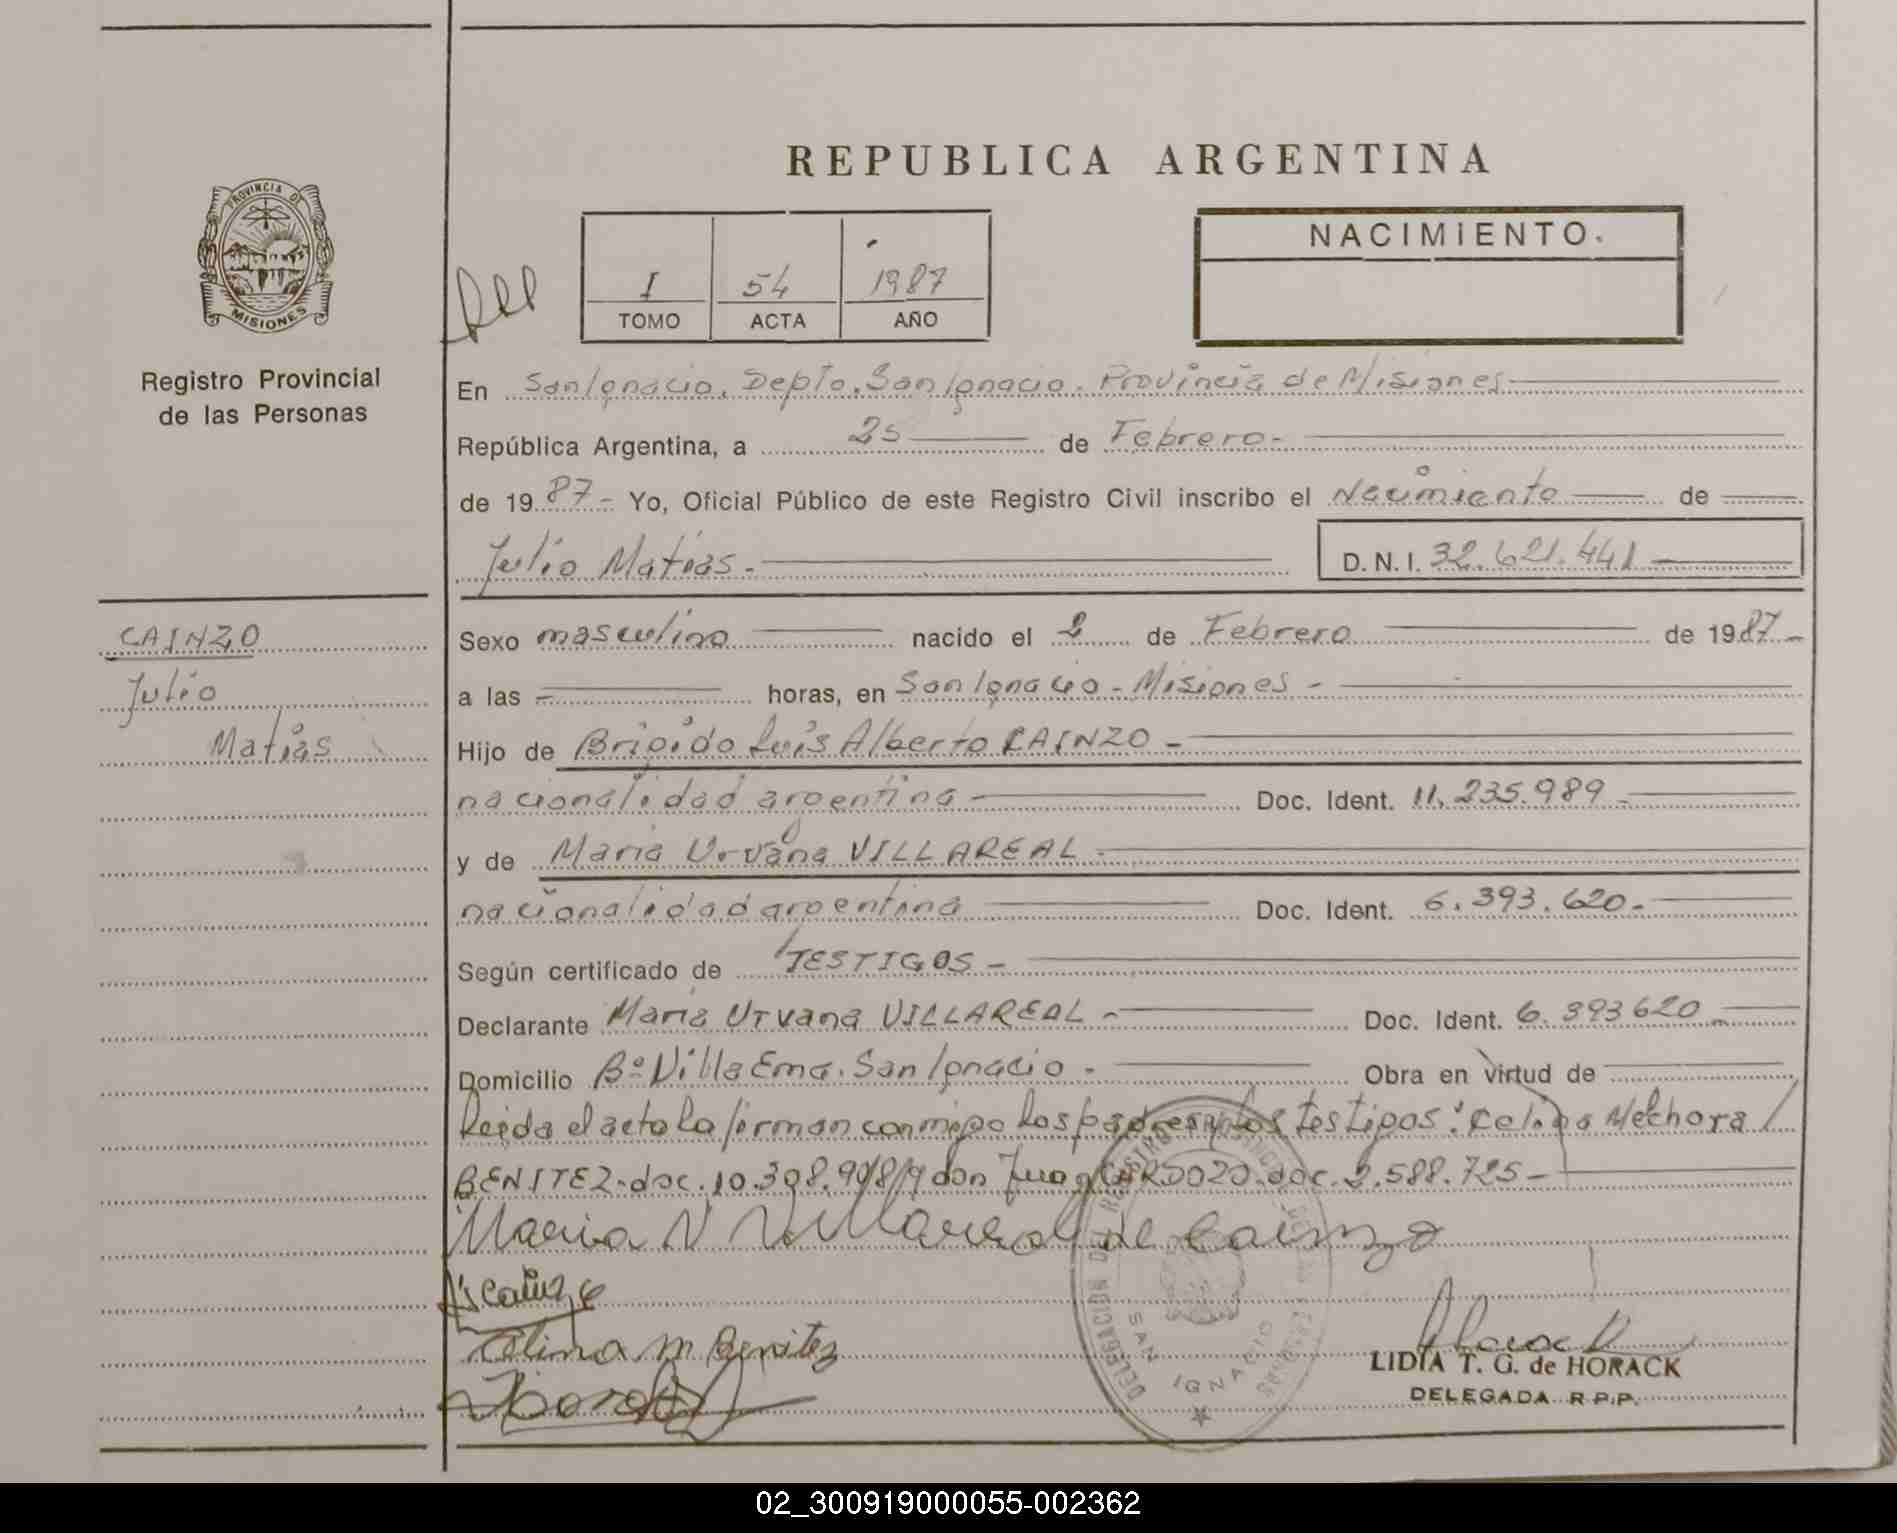 REPUBLICA ARGENTINA
PROVINCIA DE
MISIONES
Registro Provincial
de las Personas
I 54 1987
TOMO ACTA AÑO
NACIMIENTO.
En San Ignacio. Depto. San Ignacio. Provincia de Misiones
República Argentina, a 25 de Febrero-
de 1987- Yo, Oficial Público de este Registro Civil inscribo el Nacimiento de
Julio Matías- D. N. I. 32.621.441
CAINZO
Julio
Matías
Sexo masculino nacido el 2 de Febrero de 1987-
a las horas, en San Ignacio - Misiones -
Hijo de Brigido Luis Alberto CAINZO -
nacionalidad argentina - Doc. Ident. 11.235.989-
y de Maria Urvana VILLAREAL -
nacionalidad argentina Doc. Ident. 6.393.620-
Según certificado de TESTIGOS -
Declarante Maria Urvana VILLAREAL - Doc. Ident. 6.393620-
Domicilio Bº Villa Ema. San Ignacio - Obra en virtud de
Leida el acta la firman conmigo los padres y los testigos: Celina Melchora
BENITEZ-doc. 10.308. don Juan CARDOZO doc. 2.588.725-
Maria V Villareal de Cainzo
Cainzo
Celina M Benitez
DELEGACION DEL REGISTRO PROVINCIAL DE LAS PERSONAS
SAN IGNACIO
LIDIA T. G. de HORACK
DELEGADA R.P.P.
02_300919000055-002362